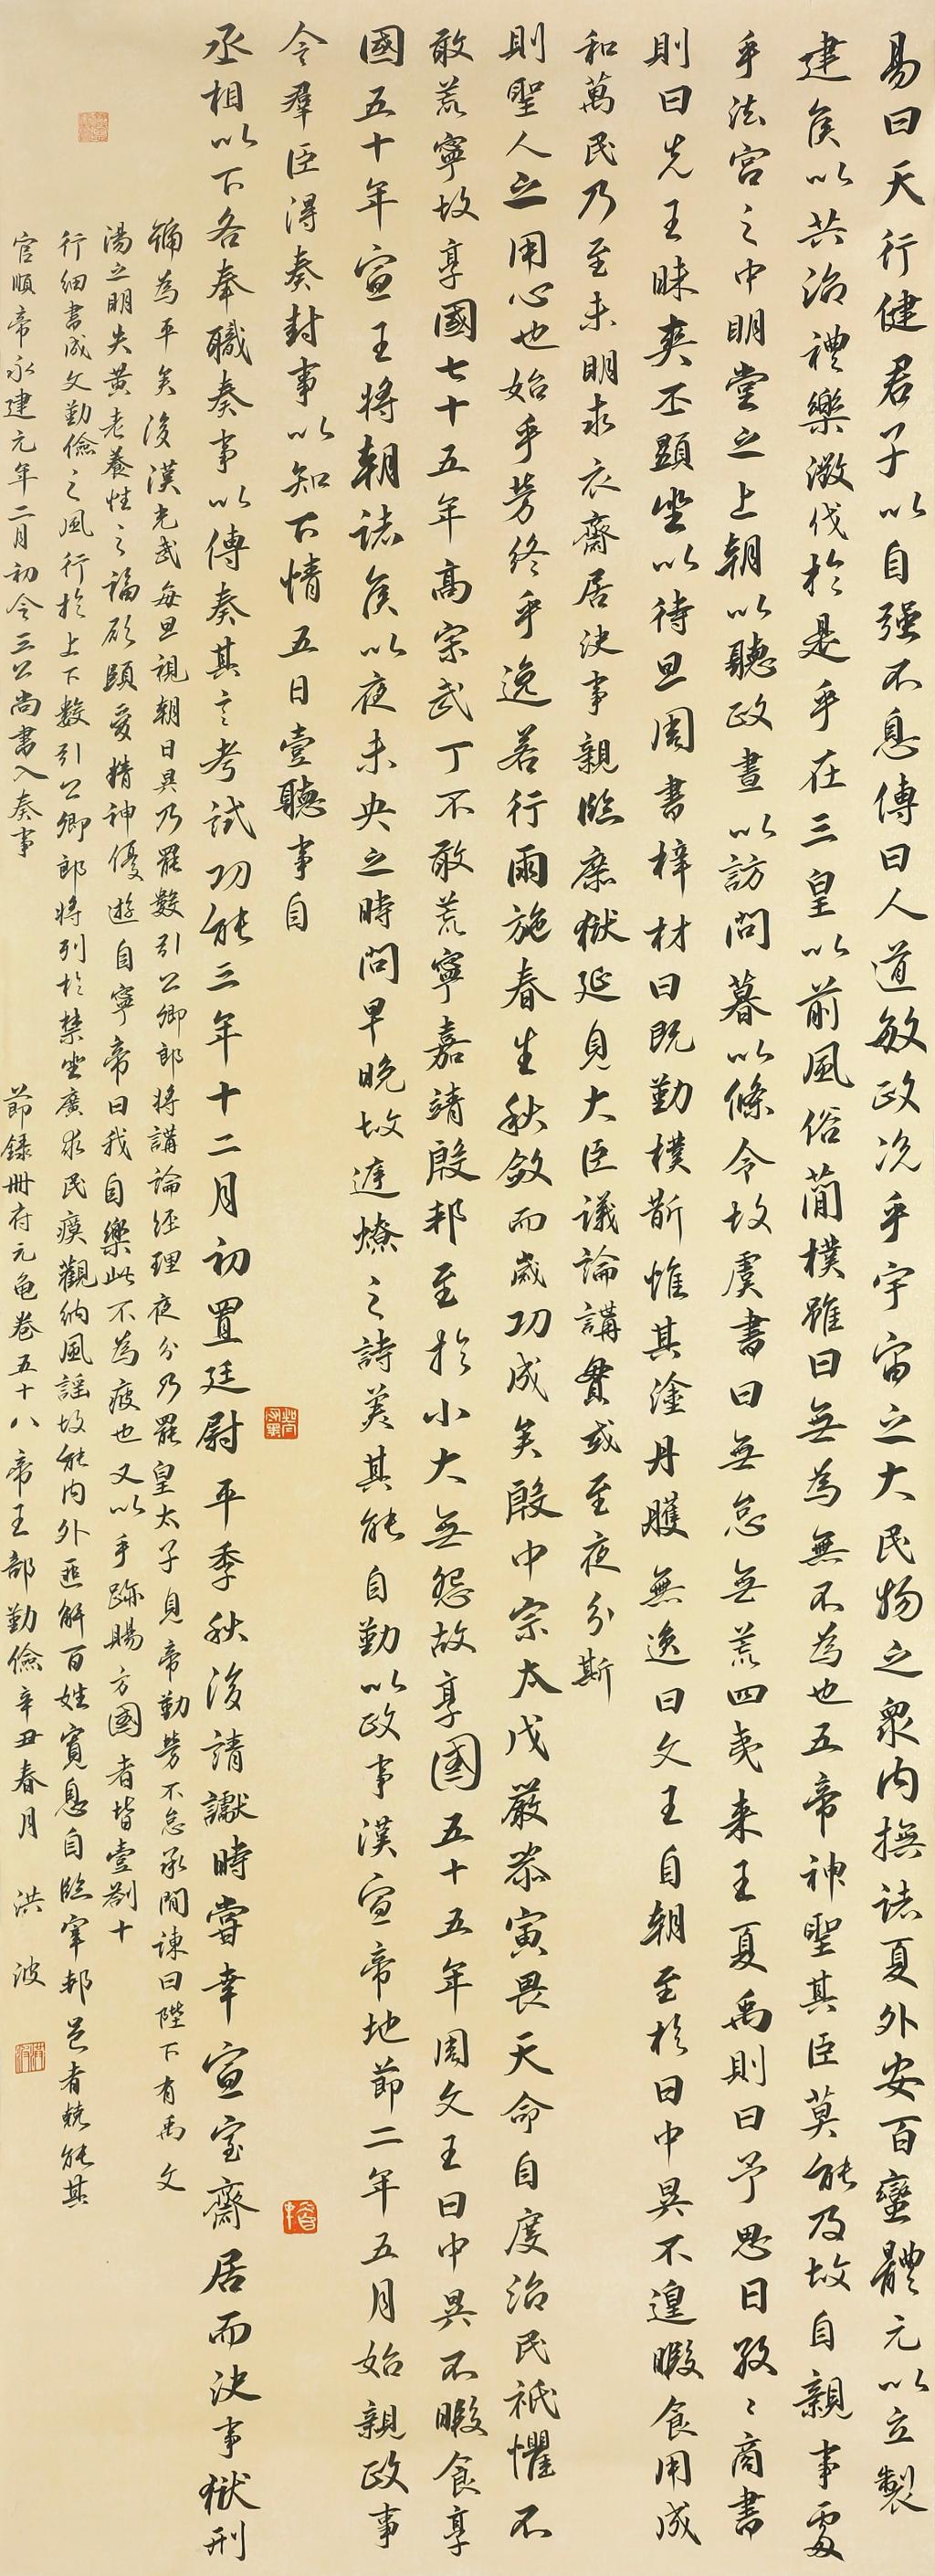 易曰天行健君子以自强不息傳曰人道敏政況乎宇宙之大民物之眾內撫諸夏外安百蠻體元以立製
建侯以共治禮樂徵伐於是乎在三皇以前風俗蕳樸雖曰無為無不為也五帝神聖其臣莫能及故自親事處
乎法宮之中明堂之上朝以聽政晝以訪問暮以條令故虞書曰無怠無荒四夷来王夏禹則曰予思日孜〻商書
則曰先王昧爽丕顯坐以待旦周書梓材曰既勤樸斲惟其塗丹雘無逸曰文王自朝至於日中昃不遑暇食用咸
和萬民乃至未明求衣齋居決事親臨庶獄延見大臣議論講貫或至夜分斯
則聖人之用心也始乎劳終乎逸若行雨施春生秋斂而歲功成矣殷中宗太戊嚴恭寅畏天命自度治民祇懼不
敢荒寧故享國七十五年高宗武丁不敢荒寧嘉靖殷邦至於小大無怨故享國五十五年周文王日中昃不暇食享
國五十年宣王將朝諸侯以夜未央之時問早晚故遅燎之詩美其能自勤以政事漢宣帝地節二年五月始親政事
令羣臣得奏封事以知下情五日壹聽事自
丞相以下各奉職奏事以傳奏其言考試功能三年十二月初置廷尉平季秋後請讞時嘗幸宣室齋居而決事獄刑
號為平矣後漢光武每旦視朝日昃乃罷數引公卿郎將講論經理夜分乃罷皇太子見帝勤勞不怠承間諫曰陛下有禹文
湯之明失黃老養性之福願頤愛精神優遊自寧帝曰我自樂此不為疲也又以手跡賜方國者皆壹劄十
行細書成文勤儉之風行於上下數引公卿郎將列於禁坐廣求民瘼觀納風謡故能內外匪解百姓寬息自臨宰邦邑者兢能其
官順帝永建元年二月初令三公尚書入奏事 節錄冊府元龜卷五十八帝王部勤儉辛丑春月 洪波